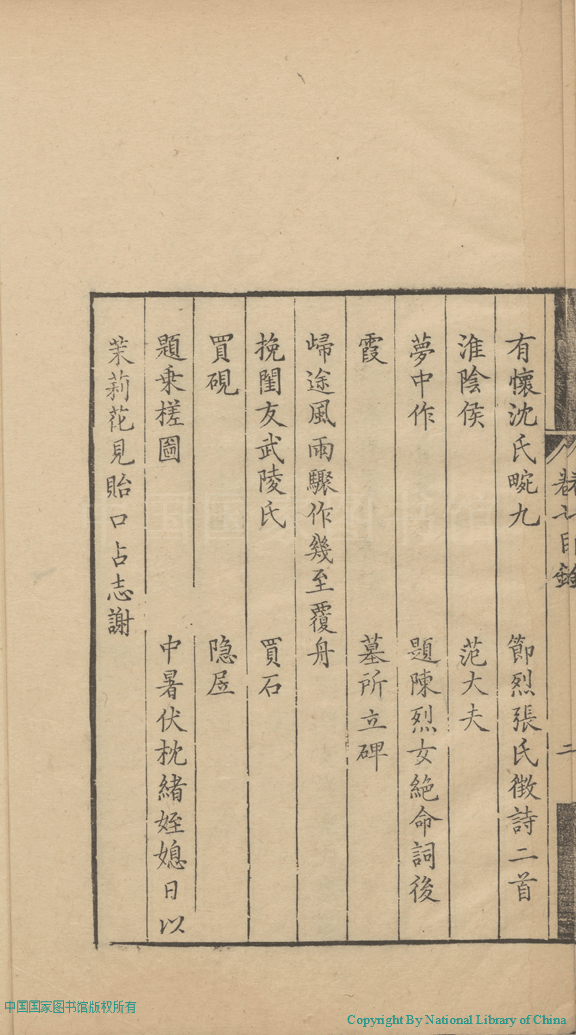 卷七目錄
二
有懷沈氏畹九　節烈張氏徵詩二首
淮陰侯　范大夫
夢中作　題陳烈女絕命詞後
霞　墓所立碑
歸途風雨驟作幾至覆舟
挽閨友武陵氏　買石
買硯　隐居
題乗槎圖　中暑伏枕緒姪媳日以
茉莉花見貽口占志謝
中国国家图书馆版权所有
Copyright By National Library of China